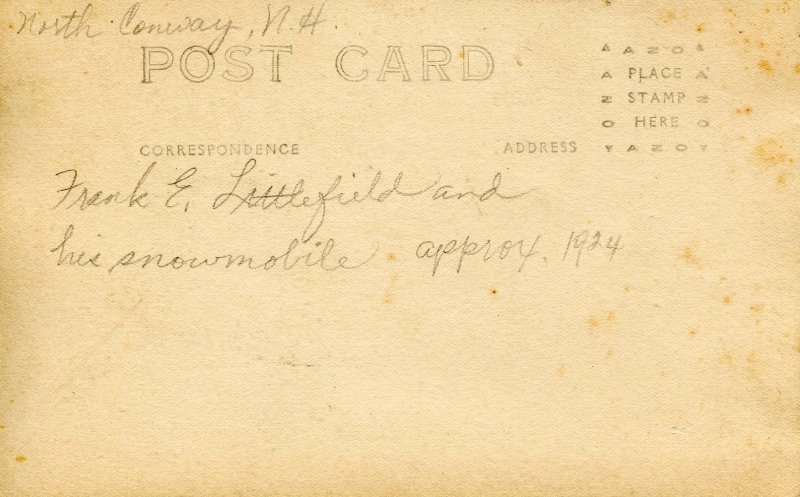 North Conway, N.H.
POST CARD
AZO
A PLACE A
Z STAMP Z
O HERE O
AZO
CORRESPONDENCE
ADDRESS
Frank E. Littlefield and
his snowmobile approx. 1924